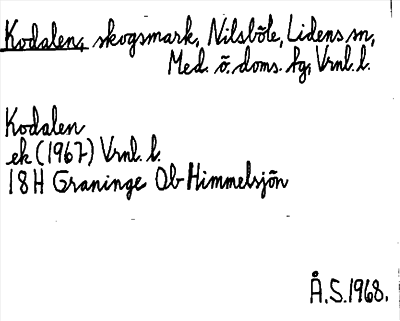 Kodalen, skogsmark, Nilsböle, Lidens sn,
Med. ö. doms. fg, Vrnl. l.
Kodalen
ek (1967) Vrnl. l.
18H Graninge Ob Himmelsjön
Å.S. 1968.